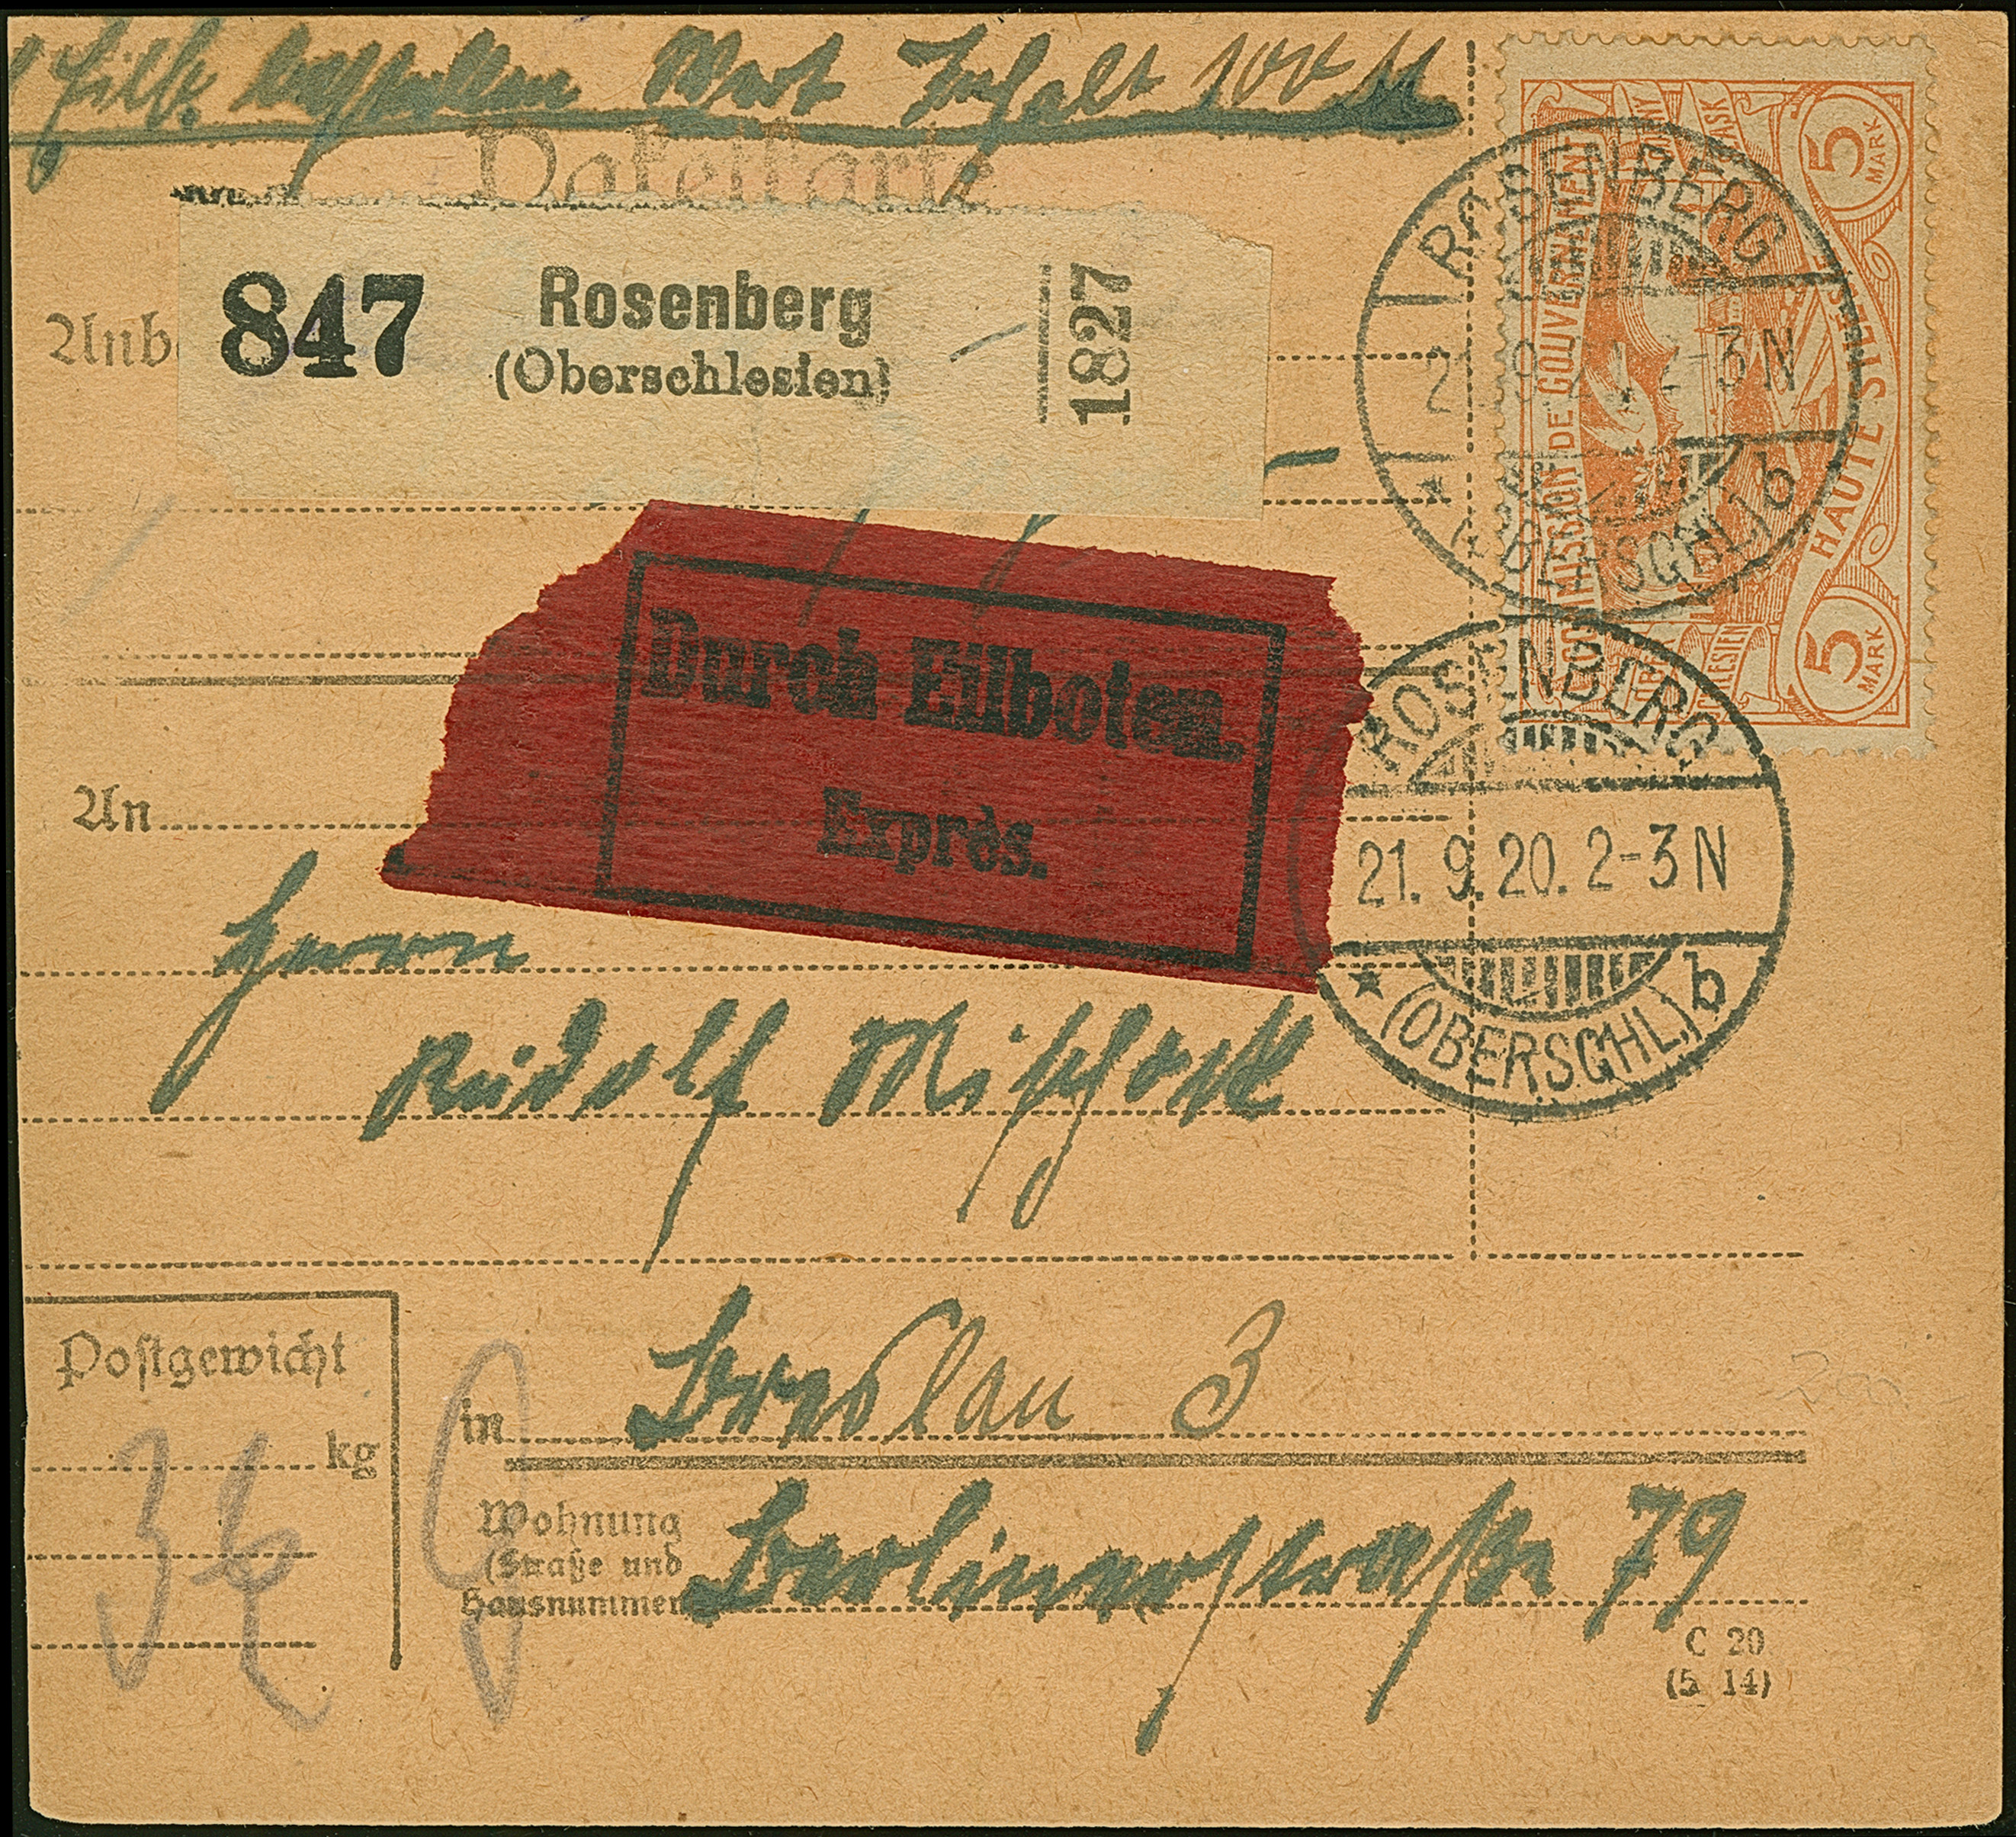 durch Eilb. bestellen Wert Inhalt 100 M
Paketkarte
847 Rosenberg
(Oberschlesien)
1827
Anb
Durch Eilboten.
Exprès.
An
Herrn
Rudolf
Postgewicht
kg
in Breslau 3
Wohnung
(Straße und
Hausnummer
Berlinerstraße 79
C 20
(5 14)
COMMISSION DE GOUVERNEMENT
HAUTE SILESIE
5 MARK
5 MARK
ROSENBERG
2-3N
b
(OBERSCHL.)
ROSENBERG
21.9.20.2-3N
* b
(OBERSCHL.)